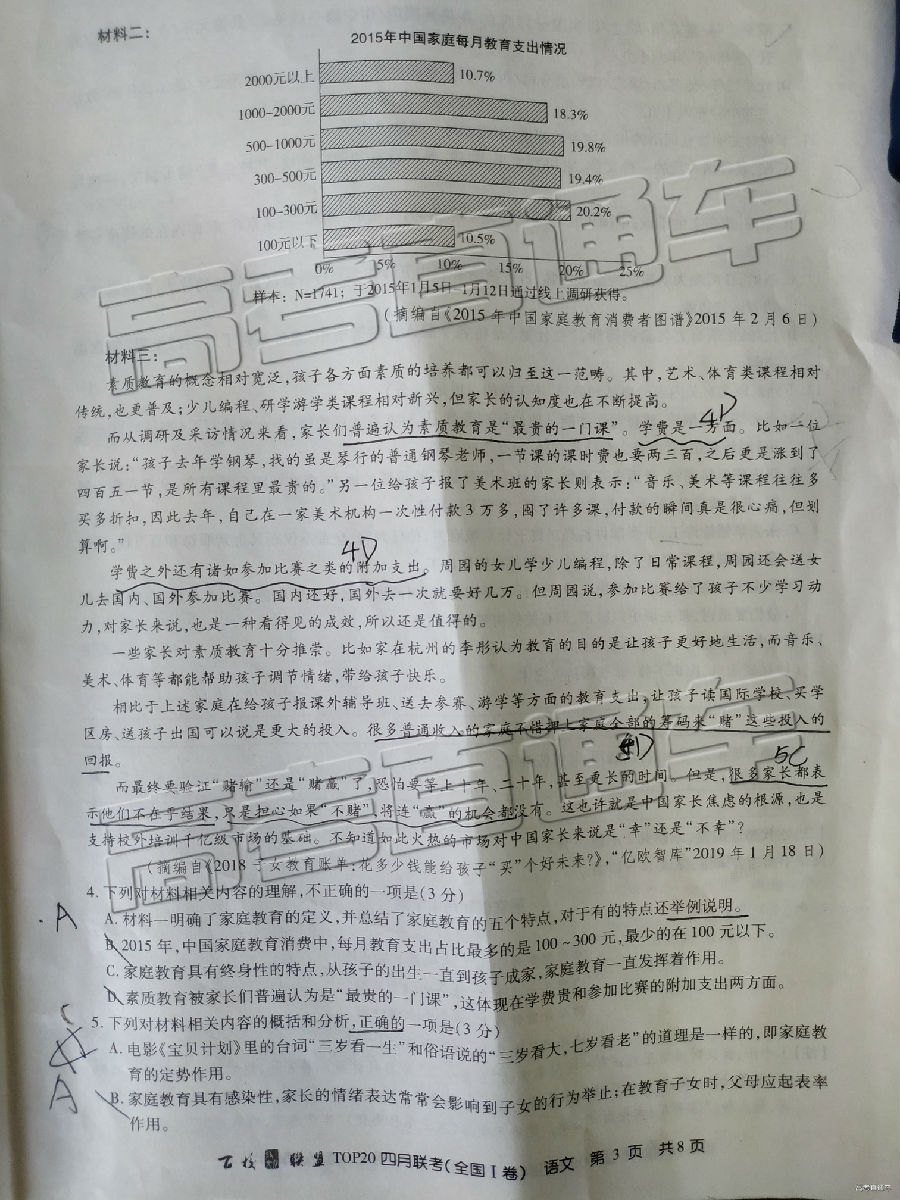 材料二：
2015年中国家庭每月教育支出情况
2000元以上 10.7%
1000-2000元 18.3%
500-1000元 19.8%
300-500元 19.4%
100-300元 20.2%
100元以下 10.5%
0% 5% 10% 15% 20% 25%
样本：N=1741；于2015年1月5日-1月12日通过线上调研获得。
（摘编自《2015年中国家庭教育消费者图谱》2015年2月6日）
材料三：
素质教育的概念相对宽泛，孩子各方面素质的培养都可以归至这一范畴。其中，艺术、体育类课程相对
传统，也更普及；少儿编程、研学游学类课程相对新兴，但家长的认知度也在不断提高。
4D
而从调研及采访情况来看，家长们普遍认为素质教育是“最贵的一门课”。学费是一方面。比如一位
家长说：“孩子去年学钢琴，找的虽是琴行的普通钢琴老师，一节课的课时费也要两三百，之后更是涨到了
四百五一节，是所有课程里最贵的。”另一位给孩子报了美术班的家长则表示：“音乐、美术等课程往往多
买多折扣，因此去年，自己在一家美术机构一次性付款3万多，囤了许多课，付款的瞬间真是很心痛，但划
算啊。”
4D
学费之外还有诸如参加比赛之类的附加支出。周园的女儿学少儿编程，除了日常课程，周园还会送女
儿去国内、国外参加比赛。国内还好，国外去一次就要好几万。但周园说，参加比赛给了孩子不少学习动
力，对家长来说，也是一种看得见的成效，所以还是值得的。
一些家长对素质教育十分推崇。比如家在杭州的李彤认为教育的目的是让孩子更好地生活，而音乐、
美术、体育等都能帮助孩子调节情绪，带给孩子快乐。
相比于上述家庭在给孩子报课外辅导班、送去参赛、游学等方面的教育支出，让孩子读国际学校、买学
区房、送孩子出国可以说是更大的投入。很多普通收入的家庭不惜押上家庭全部的筹码来“赌”这些投入的
回报。
5C
而最终要验证“赌输”还是“赌赢”了，恐怕要等上十年、二十年，甚至更长的时间。但是，很多家长都表
示他们不在乎结果，只是担心如果“不赌”，将连“赢”的机会都没有。这也许就是中国家长焦虑的根源，也是
支持校外培训千亿级市场的基础。不知道如此火热的市场对中国家长来说是“幸”还是“不幸”？
（摘编自《2018子女教育账单：花多少钱能给孩子“买”个好未来？》，“亿欧智库”2019年1月18日）
4. 下列对材料相关内容的理解，不正确的一项是（3分）
A
A. 材料一明确了家庭教育的定义，并总结了家庭教育的五个特点，对于有的特点还举例说明。
B. 2015年，中国家庭教育消费中，每月教育支出占比最多的是100~300元，最少的在100元以下。
C. 家庭教育具有终身性的特点，从孩子的出生一直到孩子成家，家庭教育一直发挥着作用。
D. 素质教育被家长们普遍认为是“最贵的一门课”，这体现在学费贵和参加比赛的附加支出两方面。
5. 下列对材料相关内容的概括和分析，正确的一项是（3分）
A
A. 电影《宝贝计划》里的台词“三岁看一生”和俗语说的“三岁看大，七岁看老”的道理是一样的，即家庭教
育的定势作用。
B. 家庭教育具有感染性，家长的情绪表达常常会影响到子女的行为举止；在教育子女时，父母应起表率
作用。
百校联盟 TOP20四月联考（全国Ⅰ卷） 语文 第3页 共8页
高考直通车
高考直通车